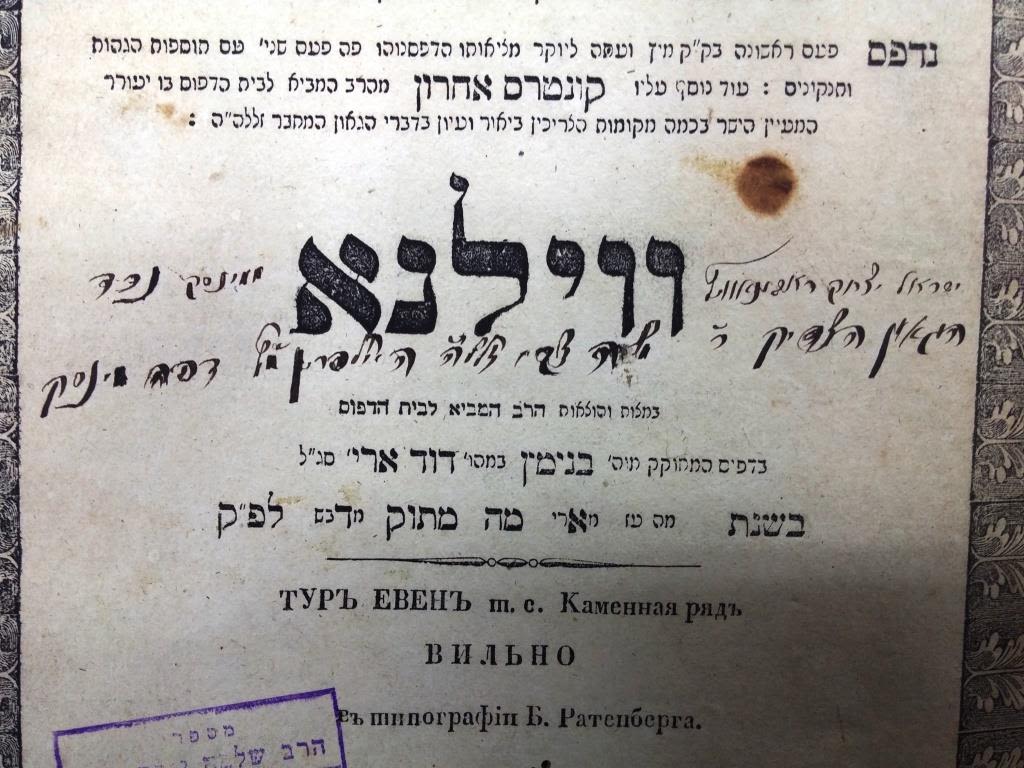 נדפס פעם ראשונה בק"ק מיץ ועתה ליוקר מציאותו הדפסנוהו פה פעם שני' עם תוספות הגהות
ותקונים : עוד נוסף עליו קונטרס אחרון מהרב המביא לבית הדפוס בו יעורר
המעיין הישר בכמה מקומות הצריכין ביאור ועיון בדברי הגאון המחבר זללה"ה :
ווילנא
ישראל יצחק ממינסק נכד
הגאון הצדיק ר' צבי זללה"ה היילפרין דפה מינסק
במצות והוצאות הרב המביא לבית הדפוס
בדפוס המחוקק מוה' בנימין במהו' דוד ארי' סג"ל
בשנת מה עז מארי מה מתוק מדבש לפ"ק
ТУРЪ ЕВЕНЪ т. с. Каменная рядъ
ВИЛЬНО
въ типографіи Б. Ратенберга.
מספרי
הרב